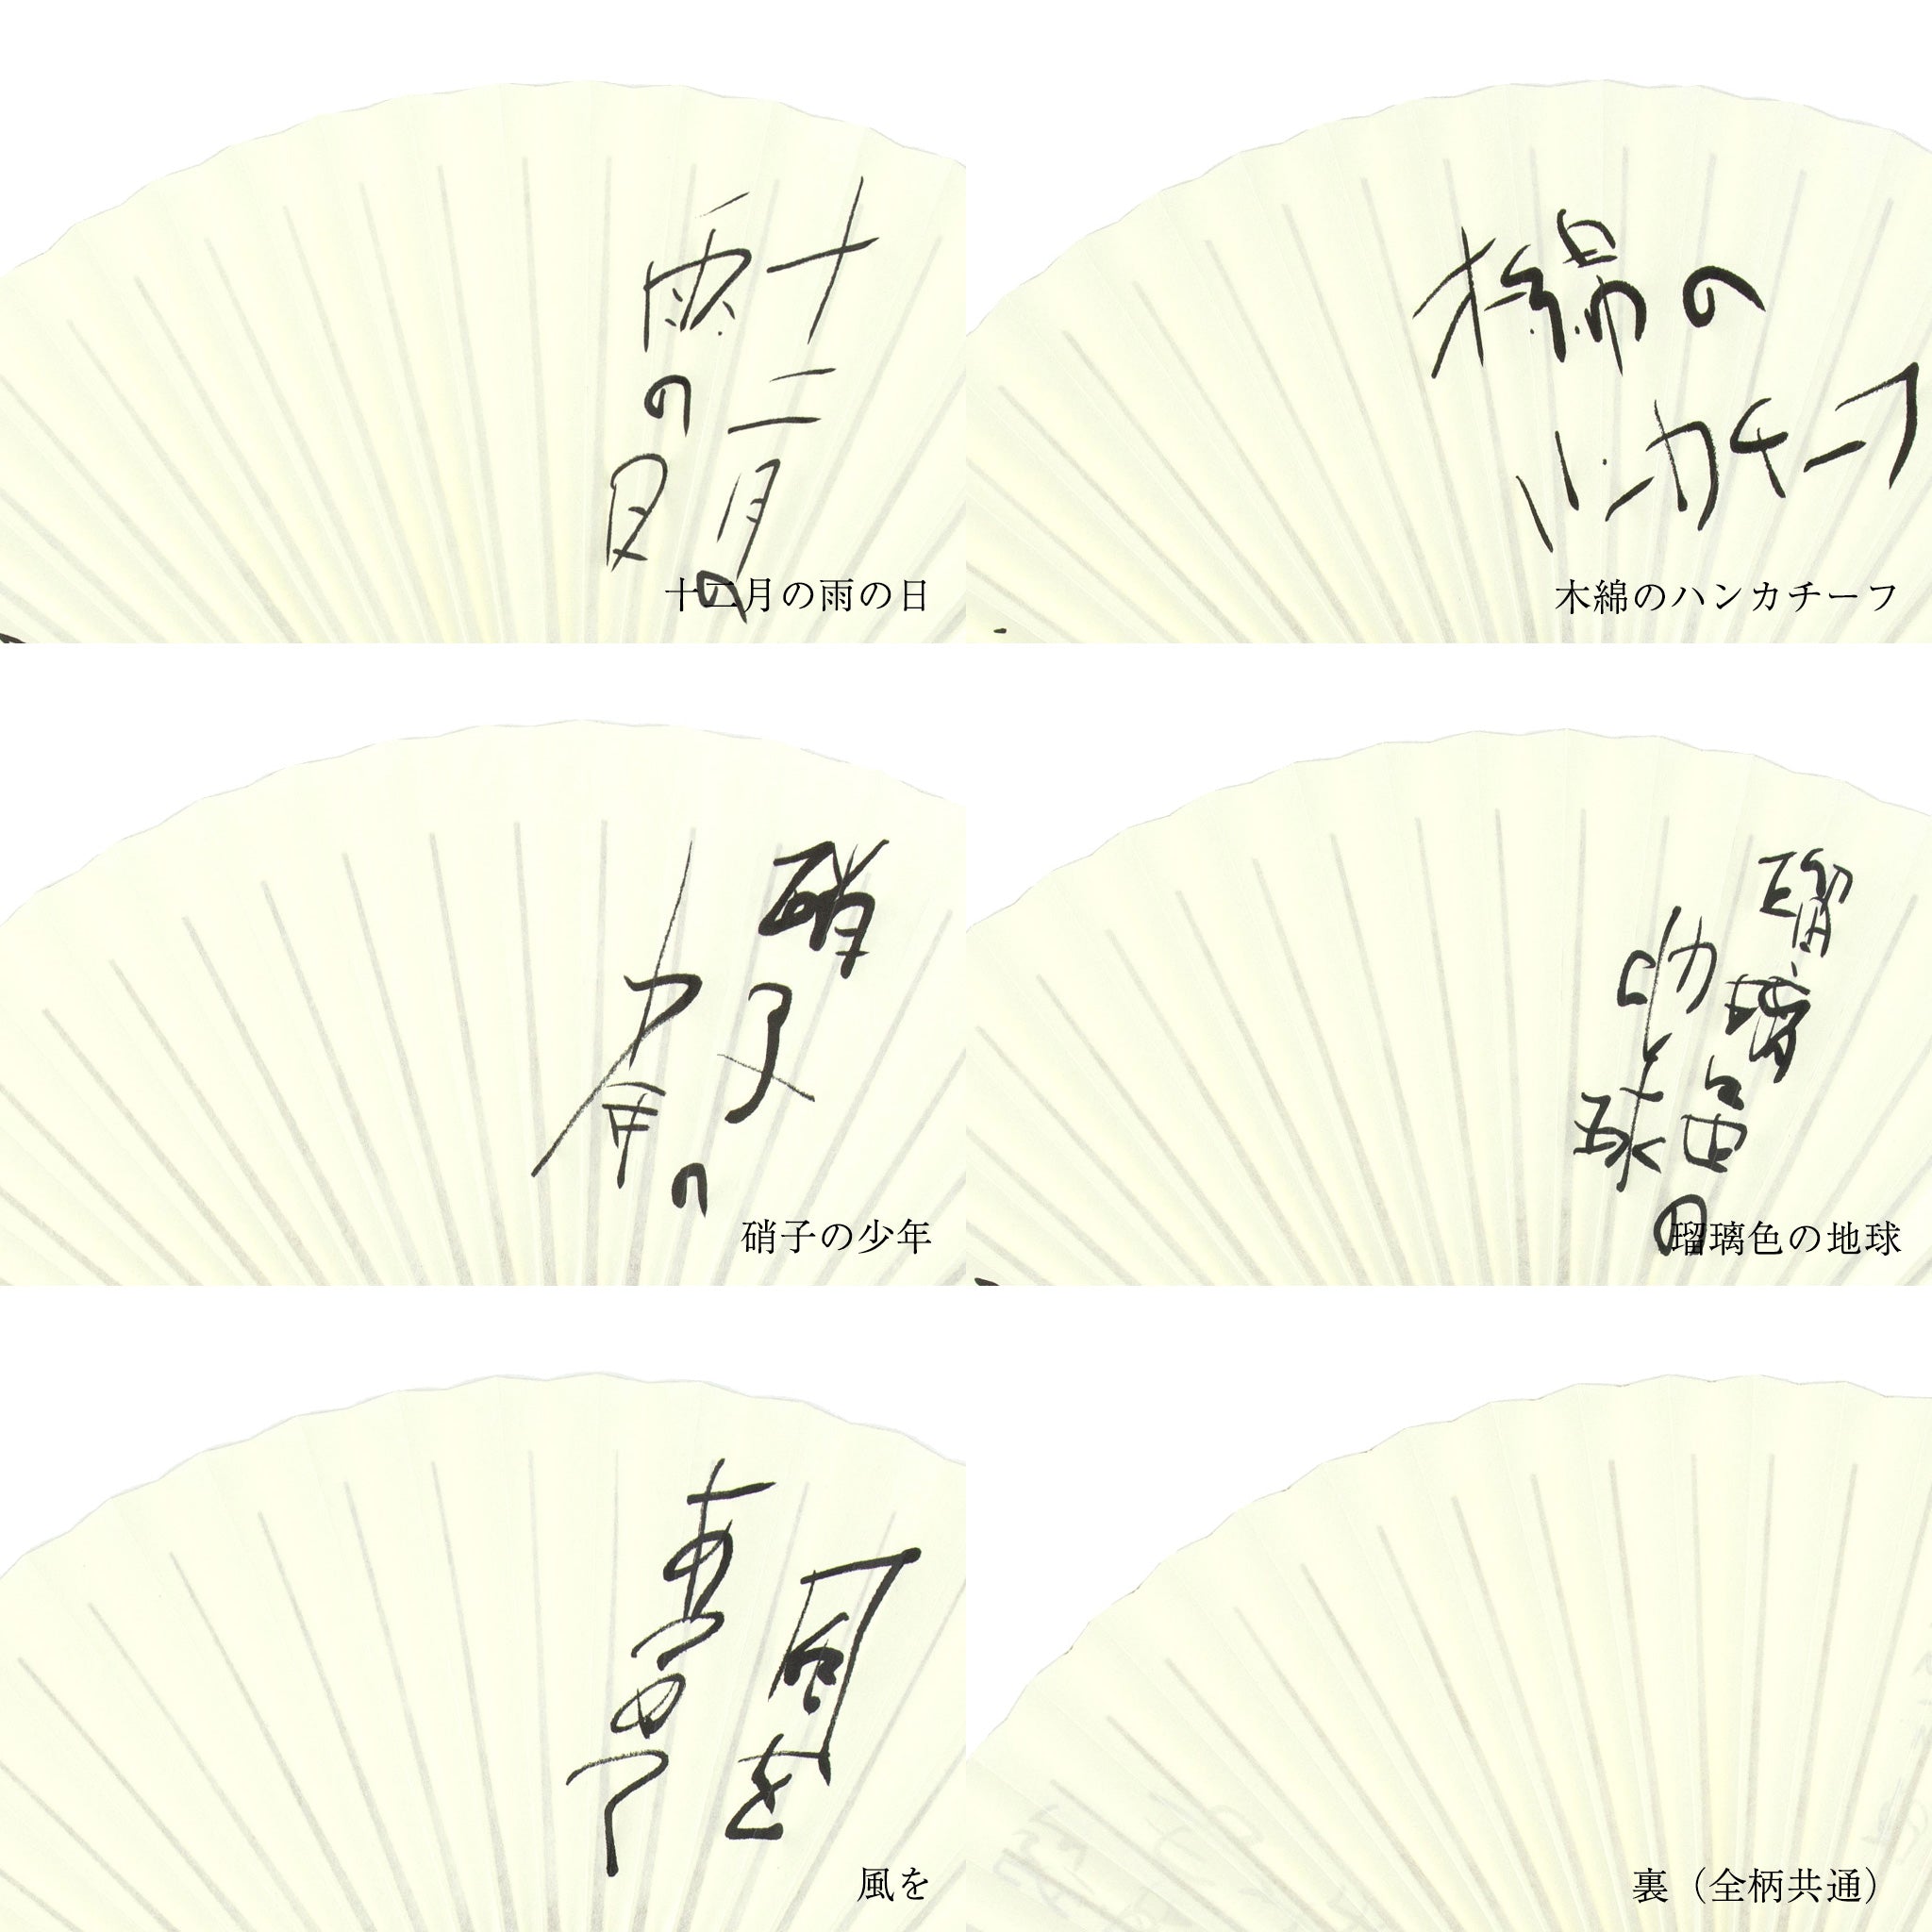 十二月の
雨の日
十二月の雨の日
木綿の
ハンカチーフ
木綿のハンカチーフ
硝子の
少年
硝子の少年
瑠璃色の
地球
瑠璃色の地球
風を
あつめて
風を
裏（全柄共通）